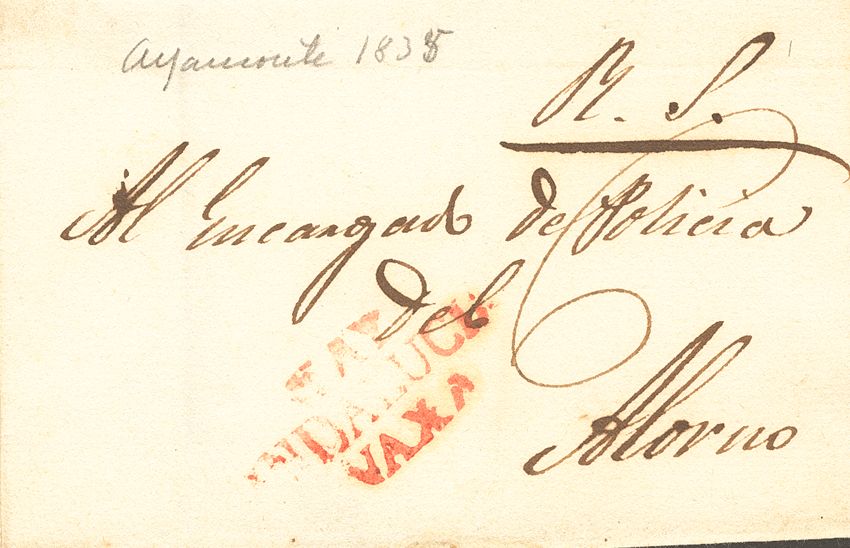 Ayamonte 1835
R. S.
Al Encargado de Policia
del
Alorno
AY
NDALUCI
VAXA